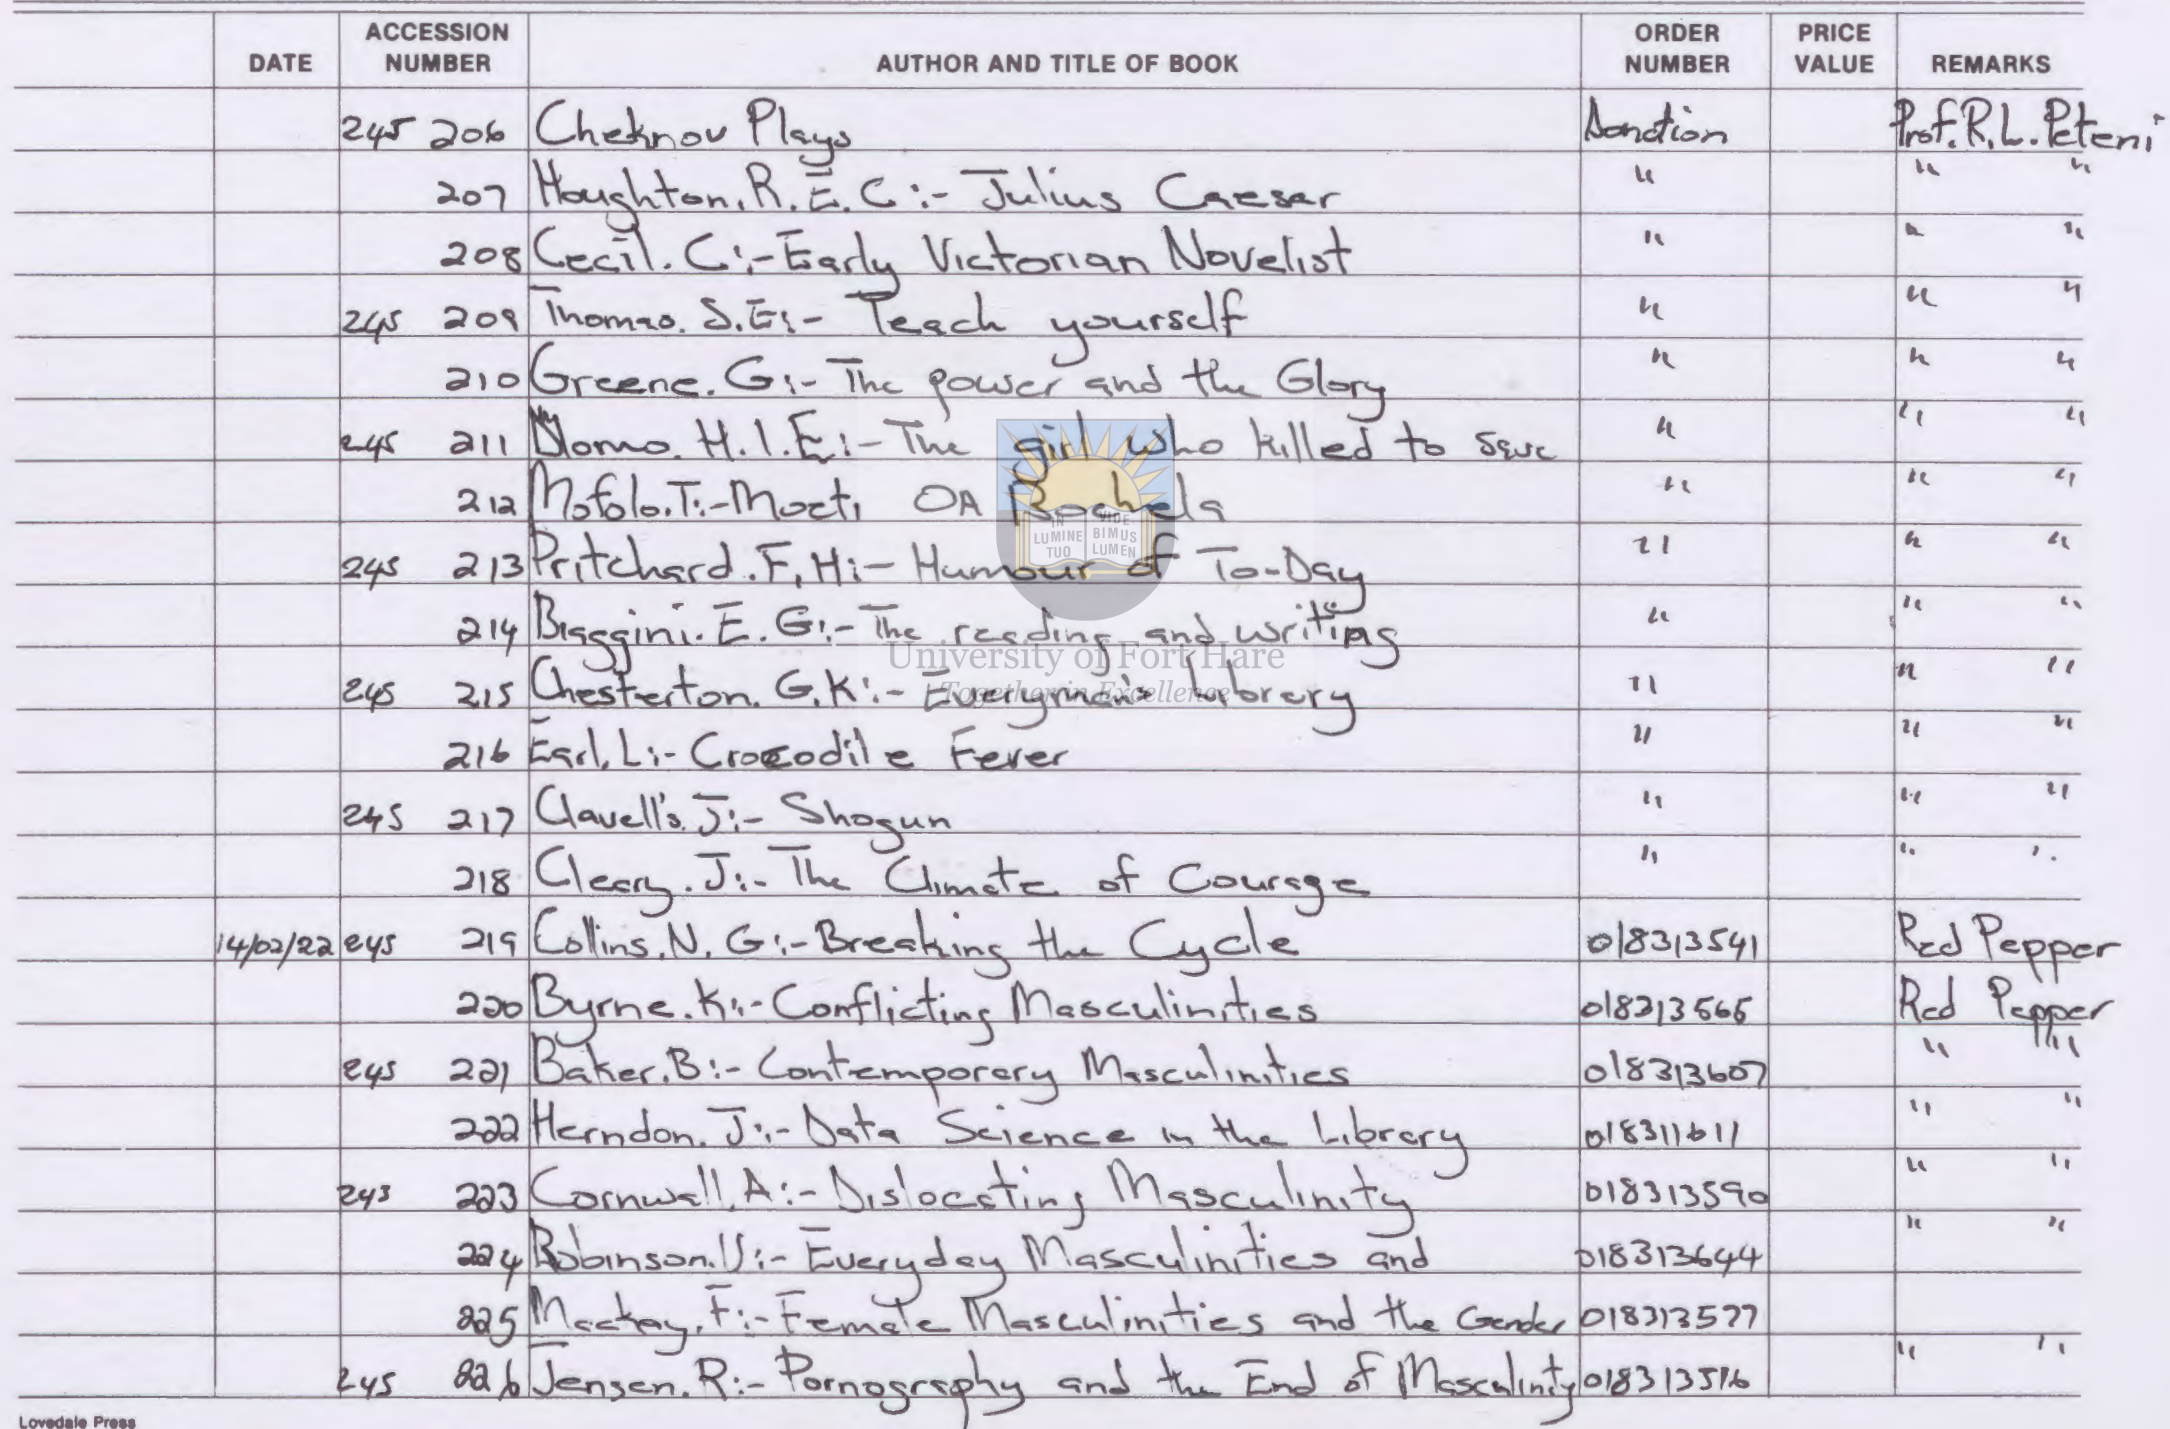 DATE ACCESSION NUMBER AUTHOR AND TITLE OF BOOK ORDER NUMBER PRICE VALUE REMARKS
245 206 Cheknov Plays Donction Prof. R. L. Peteni
207 Houghton. R. E. C:- Julius Caesar " " "
208 Cecil. C:- Early Victorian Novelist " " "
245 209 Thomas. S.E:- Teach yourself " " "
210 Greene. G:- The power and the Glory " " "
245 211 H.I.E:- The girl who killed to save " " "
212 Mofolo. T:- Moeti OA Bochela " " "
245 213 Pritchard. F. H:- Humour of To-Day " " "
214 Biaggini. E. G:- The reading and writing " " "
245 215 Chesterton. G.K:- Everyman's Library " " "
216 Earl. L:- Crocodile Fever " " "
245 217 Clavell's. J:- Shogun " " "
218 Cleary. J:- The Climate of Courage " " "
14/02/22 245 219 Collins. N. G:- Breaking the Cycle 018313541 Red Pepper
220 Byrne. K:- Conflicting Masculinities 018313565 Red Pepper
245 221 Baker. B:- Contemporary Masculinities 018313607 " "
222 Herndon. J:- Data Science in the Library 018311611 " "
245 223 Cornwall. A:- Dislocating Masculinity 018313590 " "
224 Robinson. V:- Everyday Masculinities and 018313644 " "
225 Mackay. F:- Female Masculinities and the Gender 018313577
245 226 Jensen. R:- Pornography and the End of Masculinty 018313516 " "
IN LUMINE TUO VIDE BIMUS LUMEN
University of Fort Hare
Together in Excellence
Lovedale Press